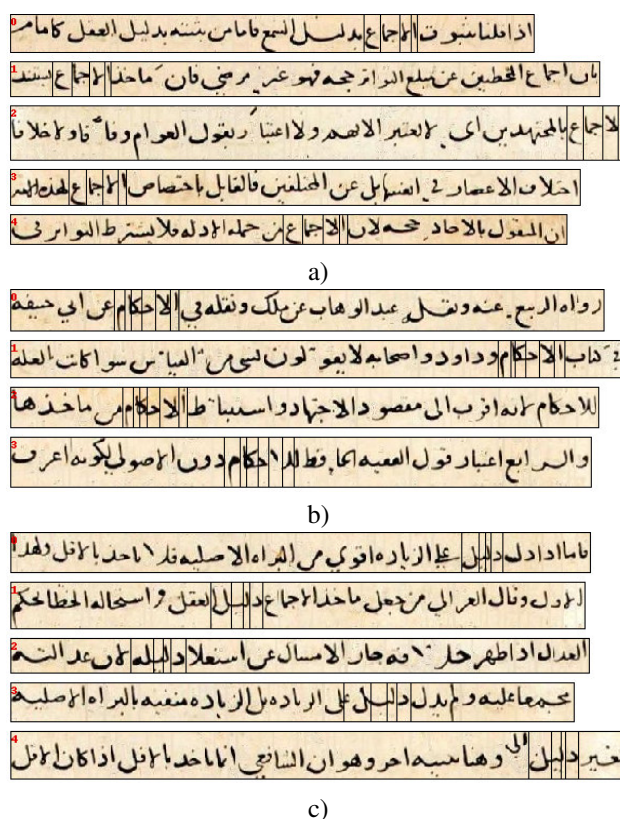 0
اذا قلنا بثبوت الاجماع بدليل السمع فاما من يثبته بدليل العقل كامام
1
بان اجماع المخطين عن مبلغ التواتر حجه فهو غير مرضي فان ماخذ الاجماع يستند
2
الاجماع بالمجتهدين اى لا يعتبر الا بهم ولا اعتبار بقول العوام وفاقا ولا خلافا
3
اختلاف الاعصار في عن المختلفين فالقايل باختصاص الاجماع بهذه
4
ان المنقول بالاحاد حجه لان الاجماع من جمله الادله فلا يشترط التواتر في
a)
0
رواه الربيع عنه ونقل عبد الوهاب عن ملك ونقله في الاحكام عن ابي حنيفه
1
في كتاب الاحكام وداود واصحابه لا يقولون بشى من القياس سوا كانت العله
2
للاحكام لانه اقرب الى مقصود الاجتهاد واستنباط الاحكام من ماخذها
3
والرابع اعتبار قول الفقيه الحافظ للاحكام دون الاصولي لكونه اعرف
b)
0
فاما اذا دل دليل على الزياده اقوي من البراه الاصليه فلا ناخذ بالاقل ولهذا
1
للاول وقال الغزالي من جعل ماخذ الاجماع دليل العقل و استحاله الخطا لحكم
2
العدل اذا ظهر خلافه جاز الامساك عن استعلا دليله لان عدالته
3
مجمعا عليه ولم يدل دليل على الزياده بل الزياده منفيه بالبراه الاصليه
4
بغير دليل الى وهنا تنبيه اخر وهو ان الشافعي انما ياخذ بالاقل اذا كان الاقل
c)